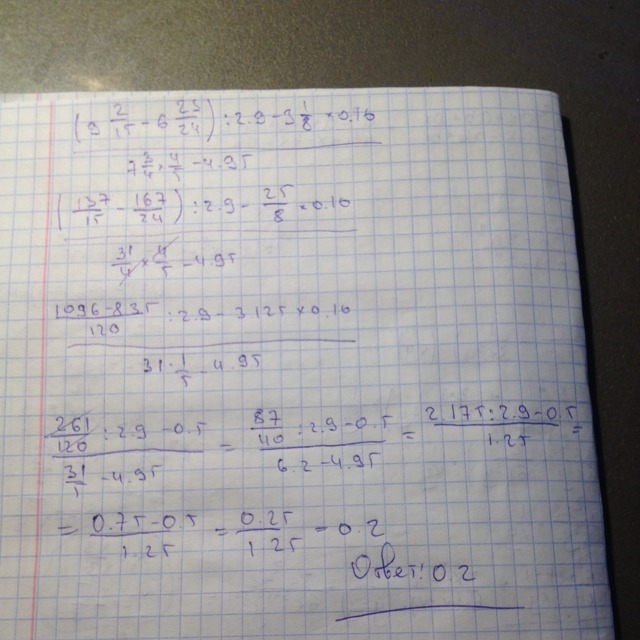 (9 2/15 - 6 23/24) : 2.9 - 3 1/8 × 0.16
7 3/4 × 4/5 - 4.95
(137/15 - 167/24) : 2.9 - 25/8 × 0.16
31/4 × 4/5 - 4.95
1096-835/120 : 2.9 - 3.125 × 0.16
31 · 1/5 - 4.95
261/120 : 2.9 - 0.5 / 31/5 - 4.95 = 87/40 : 2.9 - 0.5 / 6.2 - 4.95 = 2.175 : 2.9 - 0.5 / 1.25 =
= 0.75 - 0.5 / 1.25 = 0.25 / 1.25 = 0.2
Ответ: 0.2